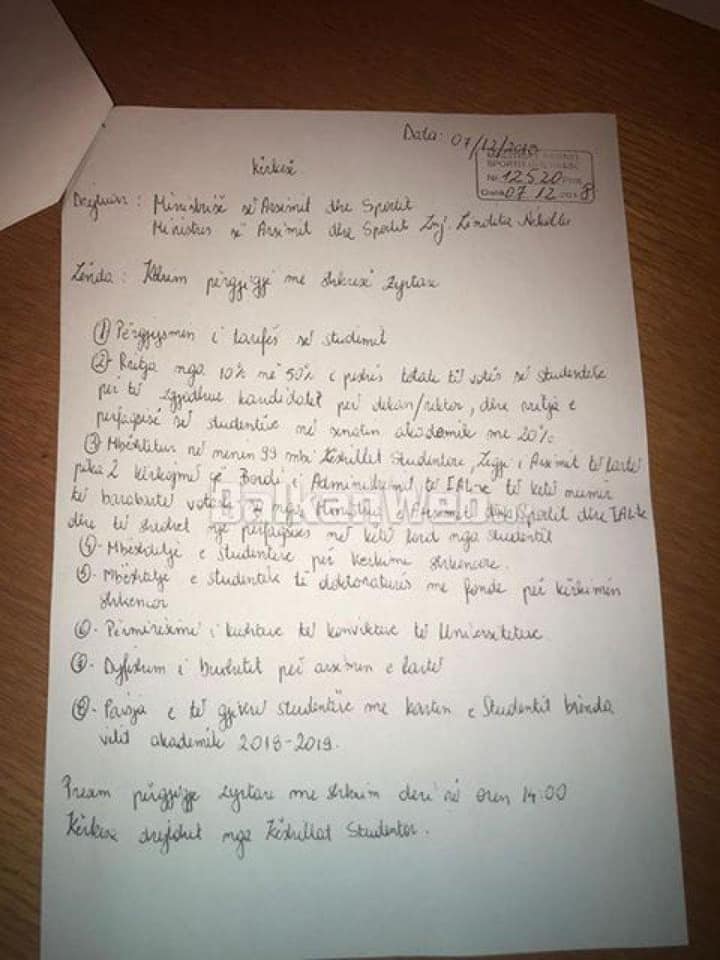 Data: 07/12/2018
Kërkesë
MINISTRIA E ARSIMIT
SPORTIT DHE RINISË
Nr. 12520 Prot
Datë 07.12.2018
Drejtuar: Ministrisë së Arsimit dhe Sportit
Ministres së Arsimit dhe Sportit Znj. Lindita Nikolla
Lënda: Kthim përgjigje me shkresë zyrtare
① Përgjysmim i tarifës së studimit
②- Rritja nga 10% në 50% e peshës totale të votës së studentëve
për të zgjedhur kandidatët për dekan/rektor, dhe rritja e
përfaqësisë së studentëve në senatin akademik me 20%.
③- Mbështetur në nenin 99 mbi Këshillat Studentore, Ligji i Arsimit të lartë
pika 2 kërkojmë që Bordi i Administrimit të IAL-ve të ketë numër
të barabartë votash nga Ministria e Arsimit dhe Sportit dhe IAL-të
dhe të shtohet një përfaqësues në këtë bord nga studentët
BalkanWeb
④- Mbështetje e studentëve për kërkime shkencore.
⑤- Mbështetje e studentëve të doktoraturës me fonde për kërkimin
shkencor
⑥- Përmirësimi i kushteve të konvikteve të Universiteteve
⑦- Dyfishim i buxhetit për arsimin e lartë
⑧- Pajisja e të gjithë studentëve me kartën e Studentit brenda
vitit akademik 2018-2019.
Presim përgjigje zyrtare me shkrim deri në orën 14:00
Kërkesë drejtohet nga Këshillat Studentor.